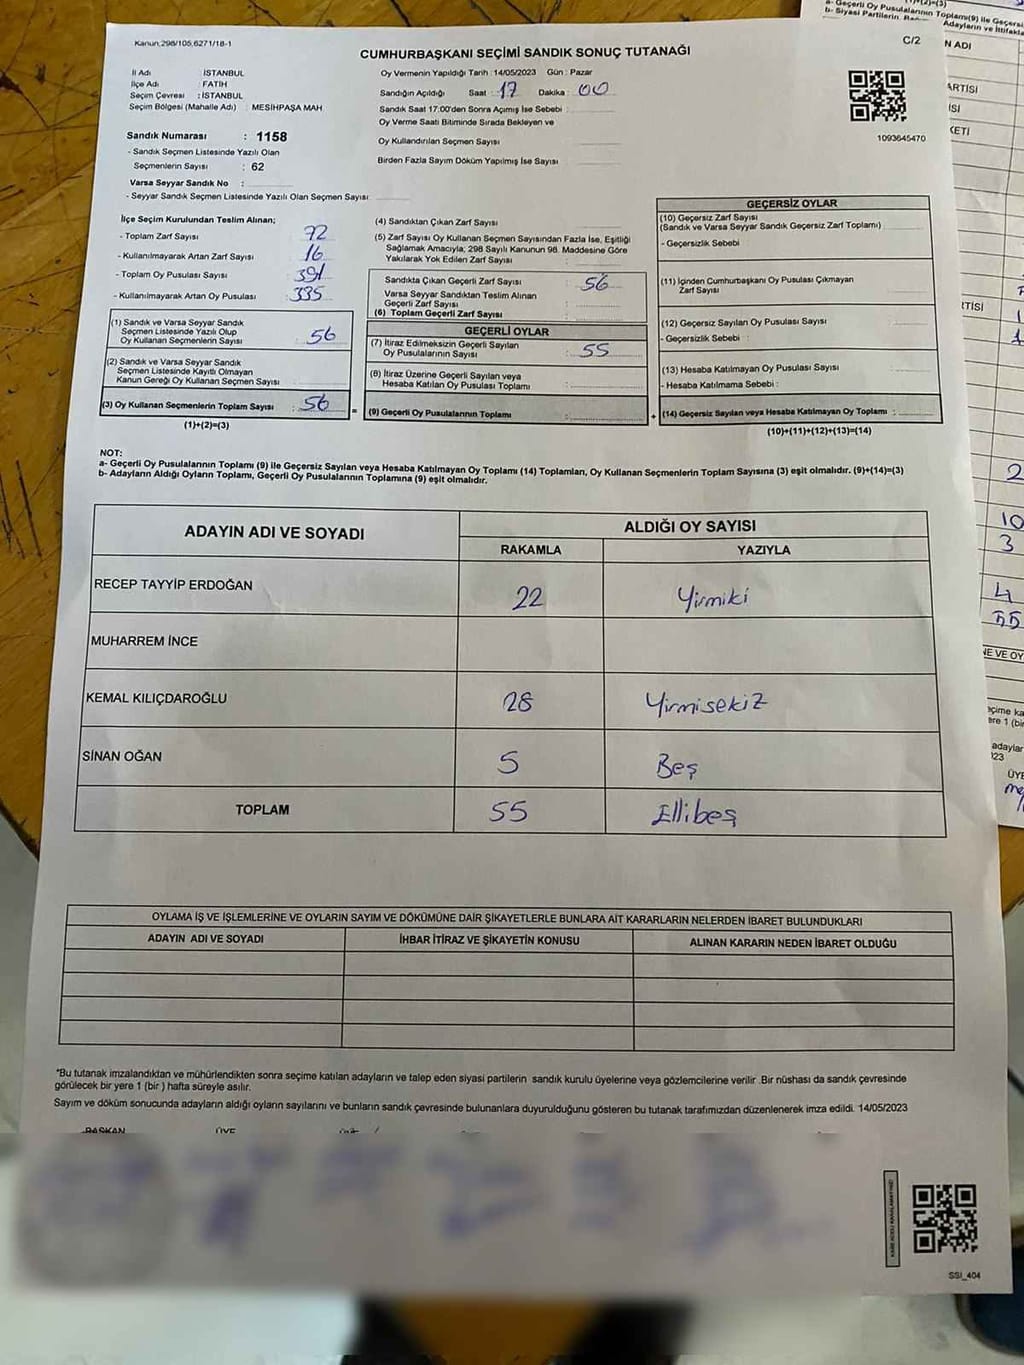 Kanun,298/105,6271/18-1
CUMHURBAŞKANI SEÇİMİ SANDIK SONUÇ TUTANAĞI
C/2
İl Adı : İSTANBUL
İlçe Adı : FATİH
Seçim Çevresi : İSTANBUL
Seçim Bölgesi (Mahalle Adı) : MESİHPAŞA MAH
Sandık Numarası : 1158
- Sandık Seçmen Listesinde Yazılı Olan
Seçmenlerin Sayısı : 62
Varsa Seyyar Sandık No :
- Seyyar Sandık Seçmen Listesinde Yazılı Olan Seçmen Sayısı
Oy Vermenin Yapıldığı Tarih :14/05/2023 Gün : Pazar
Sandığın Açıldığı Saat : 17 Dakika : 00
Sandık Saat 17:00'den Sonra Açımış İse Sebebi :
Oy Verme Saati Bitiminde Sırada Bekleyen ve
Oy Kullandırılan Seçmen Sayısı
Birden Fazla Sayım Döküm Yapılmış İse Sayısı
1093645470
İlçe Seçim Kurulundan Teslim Alınan;
- Toplam Zarf Sayısı 72
- Kullanılmayarak Artan Zarf Sayısı 16
- Toplam Oy Pusulası Sayısı 391
- Kullanılmayarak Artan Oy Pusulası 335
(1) Sandık ve Varsa Seyyar Sandık
Seçmen Listesinde Yazılı Olup
Oy Kullanan Seçmenlerin Sayısı 56
(2) Sandık ve Varsa Seyyar Sandık
Seçmen Listesinde Kayıtlı Olmayan
Kanun Gereği Oy Kullanan Seçmen Sayısı
(3) Oy Kullanan Seçmenlerin Toplam Sayısı : 56
(1)+(2)=(3)
(4) Sandıktan Çıkan Zarf Sayısı
(5) Zarf Sayısı Oy Kullanan Seçmen Sayısından Fazla İse, Eşitliği
Sağlamak Amacıyla; 298 Sayılı Kanunun 98. Maddesine Göre
Yakılarak Yok Edilen Zarf Sayısı :
Sandıkta Çıkan Geçerli Zarf Sayısı : 56
Varsa Seyyar Sandıktan Teslim Alınan
Geçerli Zarf Sayısı
(6) Toplam Geçerli Zarf Sayısı
GEÇERLİ OYLAR
(7) İtiraz Edilmeksizin Geçerli Sayılan
Oy Pusulalarının Sayısı : 55
(8) İtiraz Üzerine Geçerli Sayılan veya
Hesaba Katılan Oy Pusulası Toplamı :
= (9) Geçerli Oy Pusulalarının Toplamı :
GEÇERSİZ OYLAR
(10) Geçersiz Zarf Sayısı
(Sandık ve Varsa Seyyar Sandık Geçersiz Zarf Toplamı)
- Geçersizlik Sebebi
(11) İçinden Cumhurbaşkanı Oy Pusulası Çıkmayan
Zarf Sayısı
(12) Geçersiz Sayılan Oy Pusulası Sayısı
- Geçersizlik Sebebi :
(13) Hesaba Katılmayan Oy Pusulası Sayısı
- Hesaba Katılmama Sebebi :
+ (14) Geçersiz Sayılan veya Hesaba Katılmayan Oy Toplamı :
(10)+(11)+(12)+(13)=(14)
NOT:
a- Geçerli Oy Pusulalarının Toplamı (9) ile Geçersiz Sayılan veya Hesaba Katılmayan Oy Toplamı (14) Toplamları, Oy Kullanan Seçmenlerin Toplam Sayısına (3) eşit olmalıdır. (9)+(14)=(3)
b- Adayların Aldığı Oyların Toplamı, Geçerli Oy Pusulalarının Toplamına (9) eşit olmalıdır.
ADAYIN ADI VE SOYADI ALDIĞI OY SAYISI
RAKAMLA YAZIYLA
RECEP TAYYİP ERDOĞAN 22 Yirmiki
MUHARREM İNCE
KEMAL KILIÇDAROĞLU 28 Yirmisekiz
SİNAN OĞAN 5 Beş
TOPLAM 55 Ellibeş
OYLAMA İŞ VE İŞLEMLERİNE VE OYLARIN SAYIM VE DÖKÜMÜNE DAİR ŞİKAYETLERLE BUNLARA AİT KARARLARIN NELERDEN İBARET BULUNDUKLARI
ADAYIN ADI VE SOYADI İHBAR İTİRAZ VE ŞİKAYETİN KONUSU ALINAN KARARIN NEDEN İBARET OLDUĞU
*Bu tutanak imzalandıktan ve mühürlendikten sonra seçime katılan adayların ve talep eden siyasi partilerin sandık kurulu üyelerine veya gözlemcilerine verilir .Bir nüshası da sandık çevresinde
görülecek bir yere 1 (bir ) hafta süreyle asılır.
Sayım ve döküm sonucunda adayların aldığı oyların sayılarını ve bunların sandık çevresinde bulunanlara duyurulduğunu gösteren bu tutanak tarafımızdan düzenlenerek imza edildi. 14/05/2023
BAŞKAN ÜYE
SSİ_404